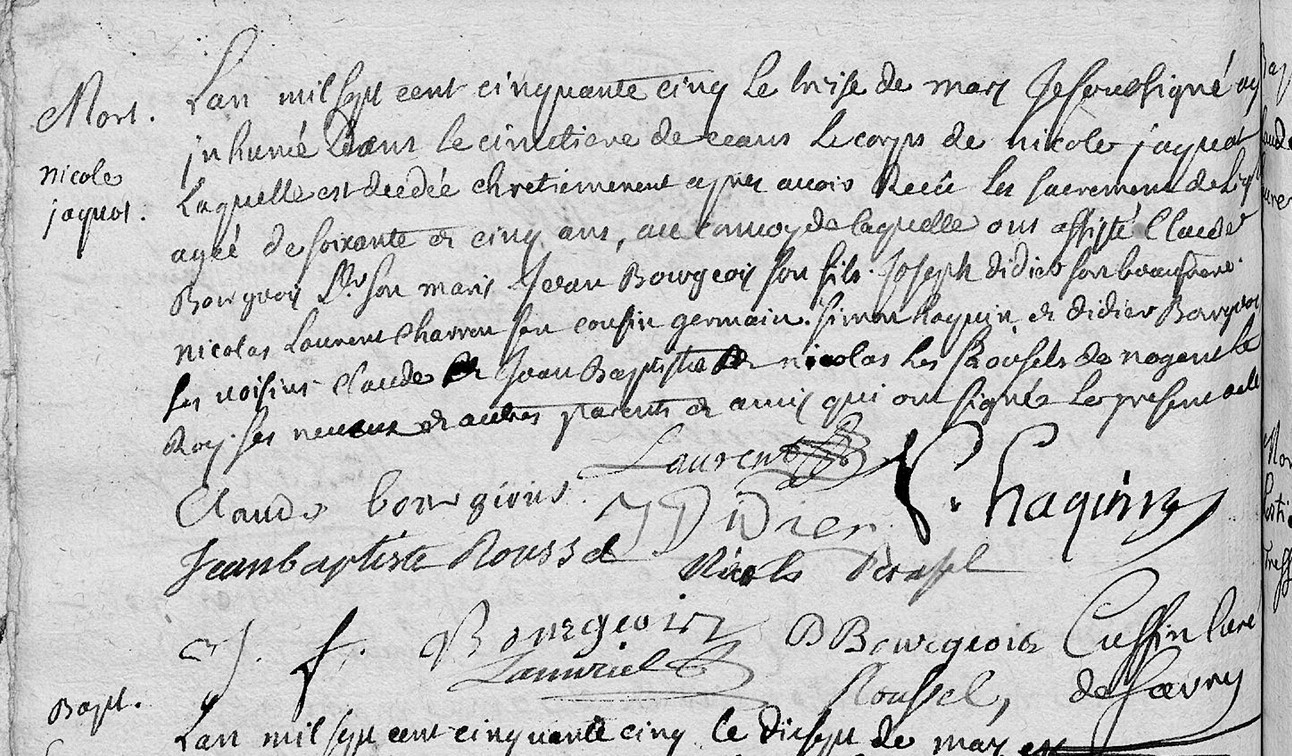 Mort.
nicole
jaquot.
Lan mil sept cent cinquante cinq le treise de mars Je soussigné ay
jnhumé dans le cimetiere de ceans le corps de nicole jaquot
Laquelle est decedée chretiennement apres avois Recû les sacrements de
ageé de soixante et cinq ans, au convoy de laquelle ont assisté Claude
Bourgeois son maris Jean Bourgeois son fils. Joseph didier son beaufrere.
nicolas Laurent Charron son cousin germain. Simon haquin et didier Bourgeois
ses voisins Claude et Jean Baptiste et nicolas les Roussels de nogent le
Roy. ses neveux et autres parents et amis qui ont signés le present acte
Laurent
Claude bourgiois
J Didier
S. haquin
Jean baptiste Roussel
Nicolas Roussel
J. Bourgeois
D Bourgeois
Cussin Curé
de
Roussel,
Bapt.
Lan mil sept cent cinquante cinq le dixsept de mars est